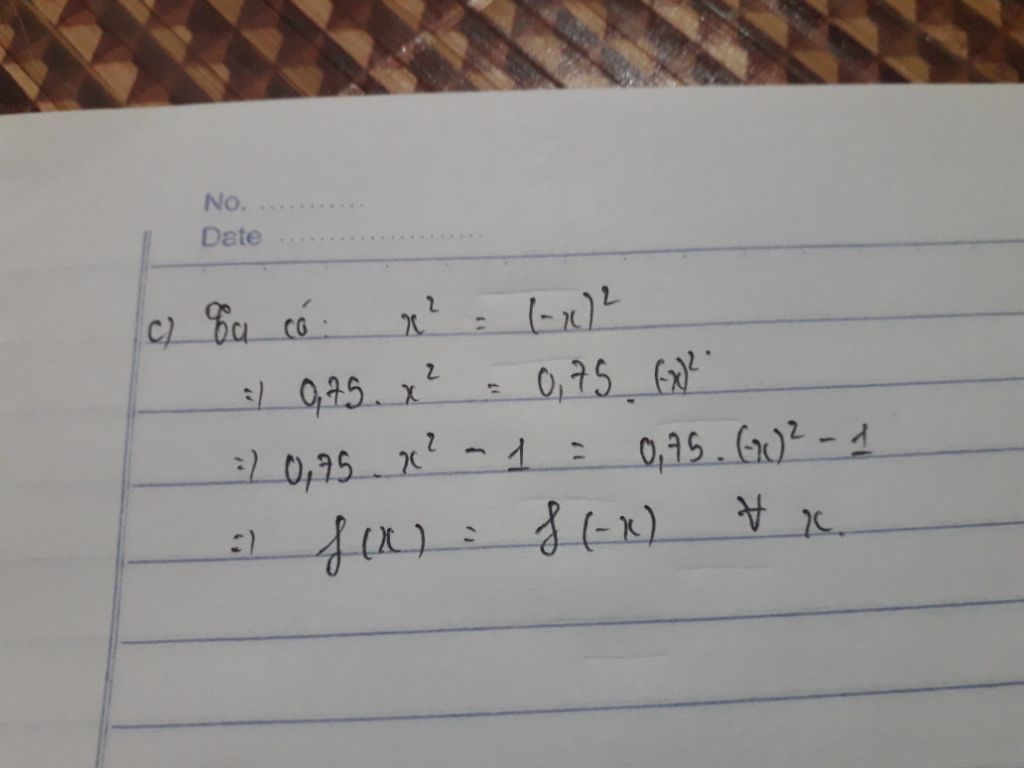 No. ...........
Date .....................
c) Ta có: x² = (-x)²
=) 0,75 . x² = 0,75 . (-x)²
=) 0,75 . x² - 1 = 0,75 . (-x)² - 1
=) f(x) = f(-x) ∀ x.